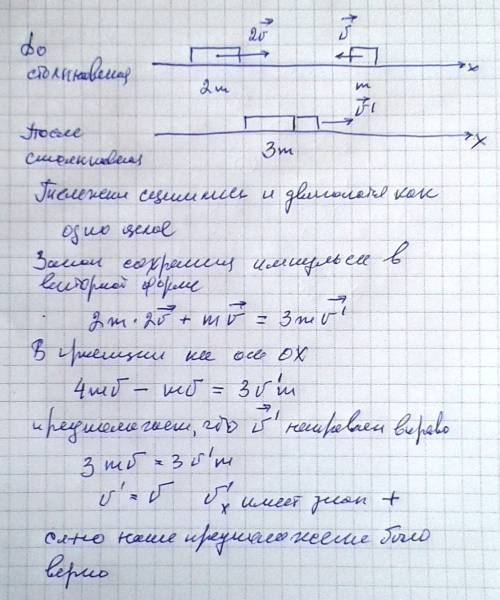 До
столкновения
2v⃗ v⃗
2m m x
После
столкновения
v⃗'
3m x
Тележки сцепились и двигаются как
одно целое
Закон сохранения импульса в
векторной форме
2m·2v⃗ + mv⃗ = 3mv⃗'
В проекции на ось OX
4mv − mv = 3v'm
предположжем, что v⃗' направлен вправо
3mv = 3v'm
v' = v v'ₓ имеет знак +
сл-но наше предположение было
верно